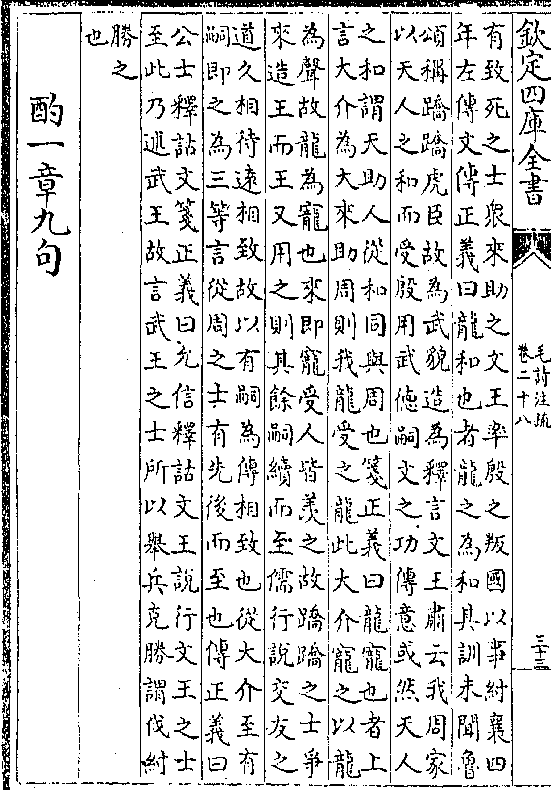 欽定四庫全書
毛詩注疏
卷二十八
三十三
有致死之士衆來助之文王率殷之叛國以事紂襄四
年左傳文傳正義曰龍和也者龍之為和其訓未聞魯
頌稱蹻蹻虎臣故為武貌造為釋言文王肅云我周家
以天人之和而受殷用武德嗣文之功傳意或然天人
之和謂天助人從和同與周也箋正義曰龍寵也者上
言大介為大來助周則我龍受之龍此大介寵之以龍
為聲故龍為寵也來即寵受人皆羙之故蹻蹻之士爭
來造王而王又用之則其餘嗣續而至儒行説交友之
道久相待逺相致故以有嗣為傳相致也從大介至有
嗣即之為三等言從周之士有先後而至也傳正義曰
公士釋詁文箋正義曰允信釋詁文王説行文王之士
至此乃述武王故言武王之士所以舉兵克勝謂伐紂
勝之
也
酌一章九句